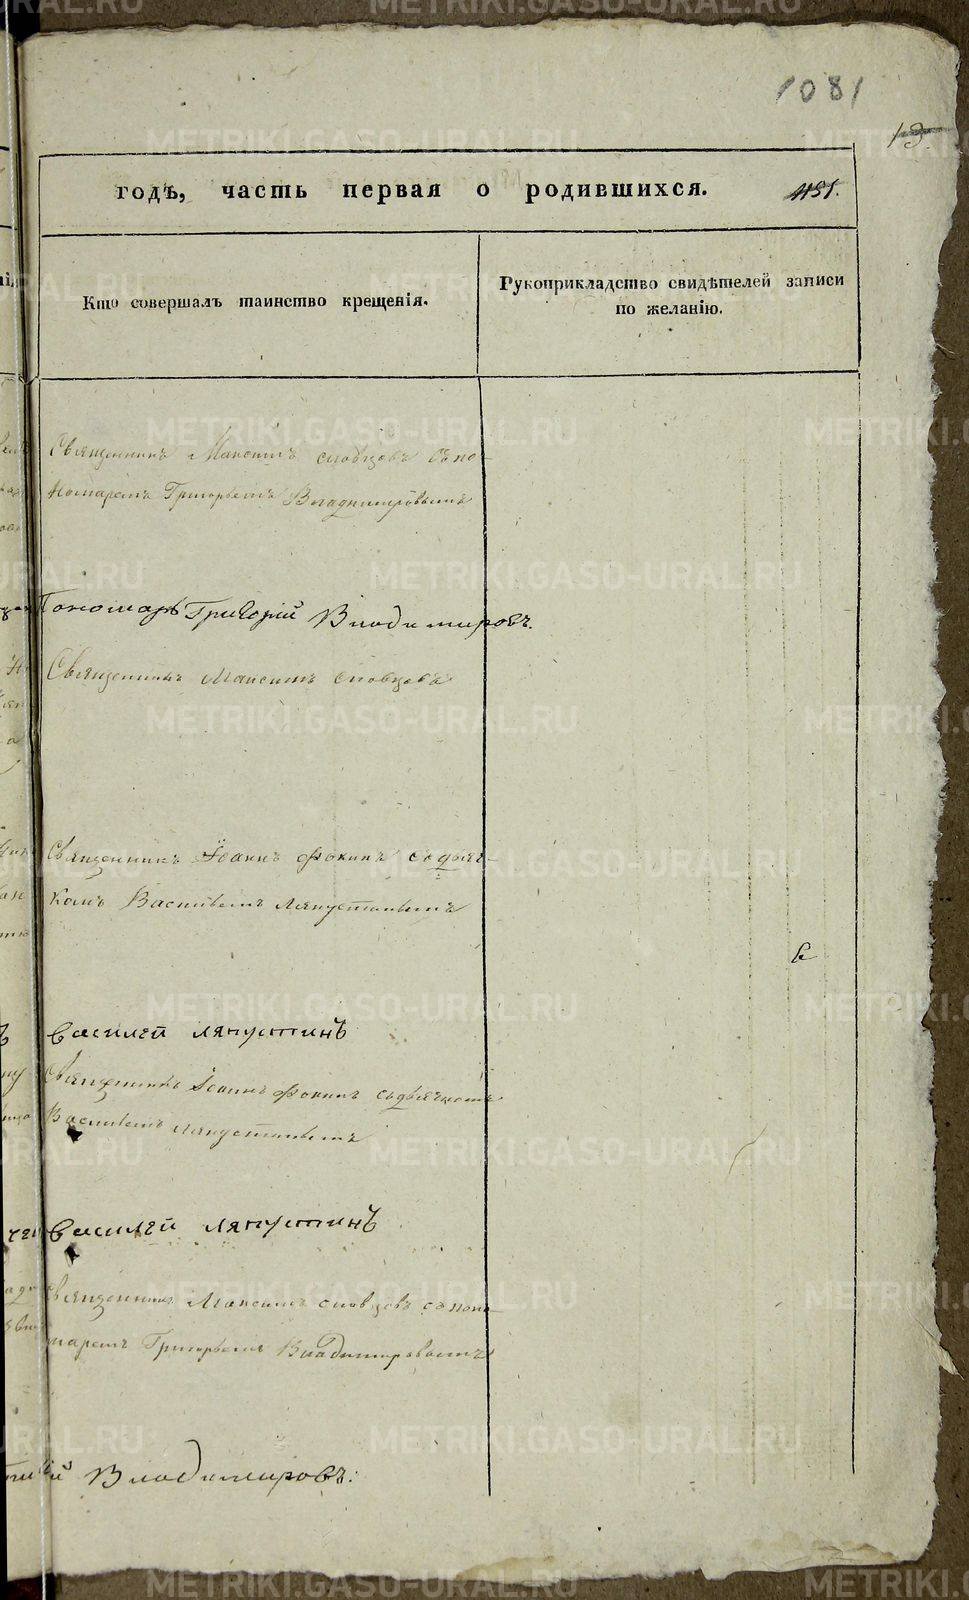 1081
13.
годъ, часть первая о родившихся. 1151.
Кто совершалъ таинство крещенія.
Рукоприкладство свидѣтелей записи
по желанію.
Священникъ Максимъ словцовъ съ по-
номаремъ Григорьемъ Владимировымъ
Пономарь Григорій Владимировъ.
Священникъ Максимъ словцовъ
Священникъ Іоаннъ Фокинъ съ дьяч-
комъ Васильемъ Ляпустинымъ
Василей Ляпустинъ
Священникъ Іоаннъ Фокинъ съ дьячкомъ
Васильемъ Ляпустинымъ
Василей Ляпустинъ
Священникъ Максимъ словцовъ съ поно-
маремъ Григорьемъ Владимировымъ
Владимировъ.
METRIKI.GASO-URAL.RU